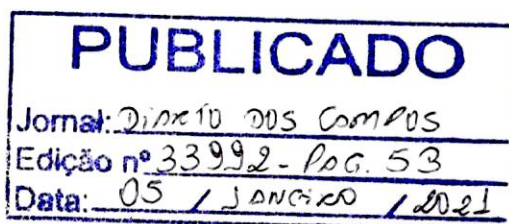 PUBLICADO
Jornal: DIÁRIO DOS CAMPOS
Edição nº 33992 - PAG. 53
Data: 05 / JANEIRO / 2021